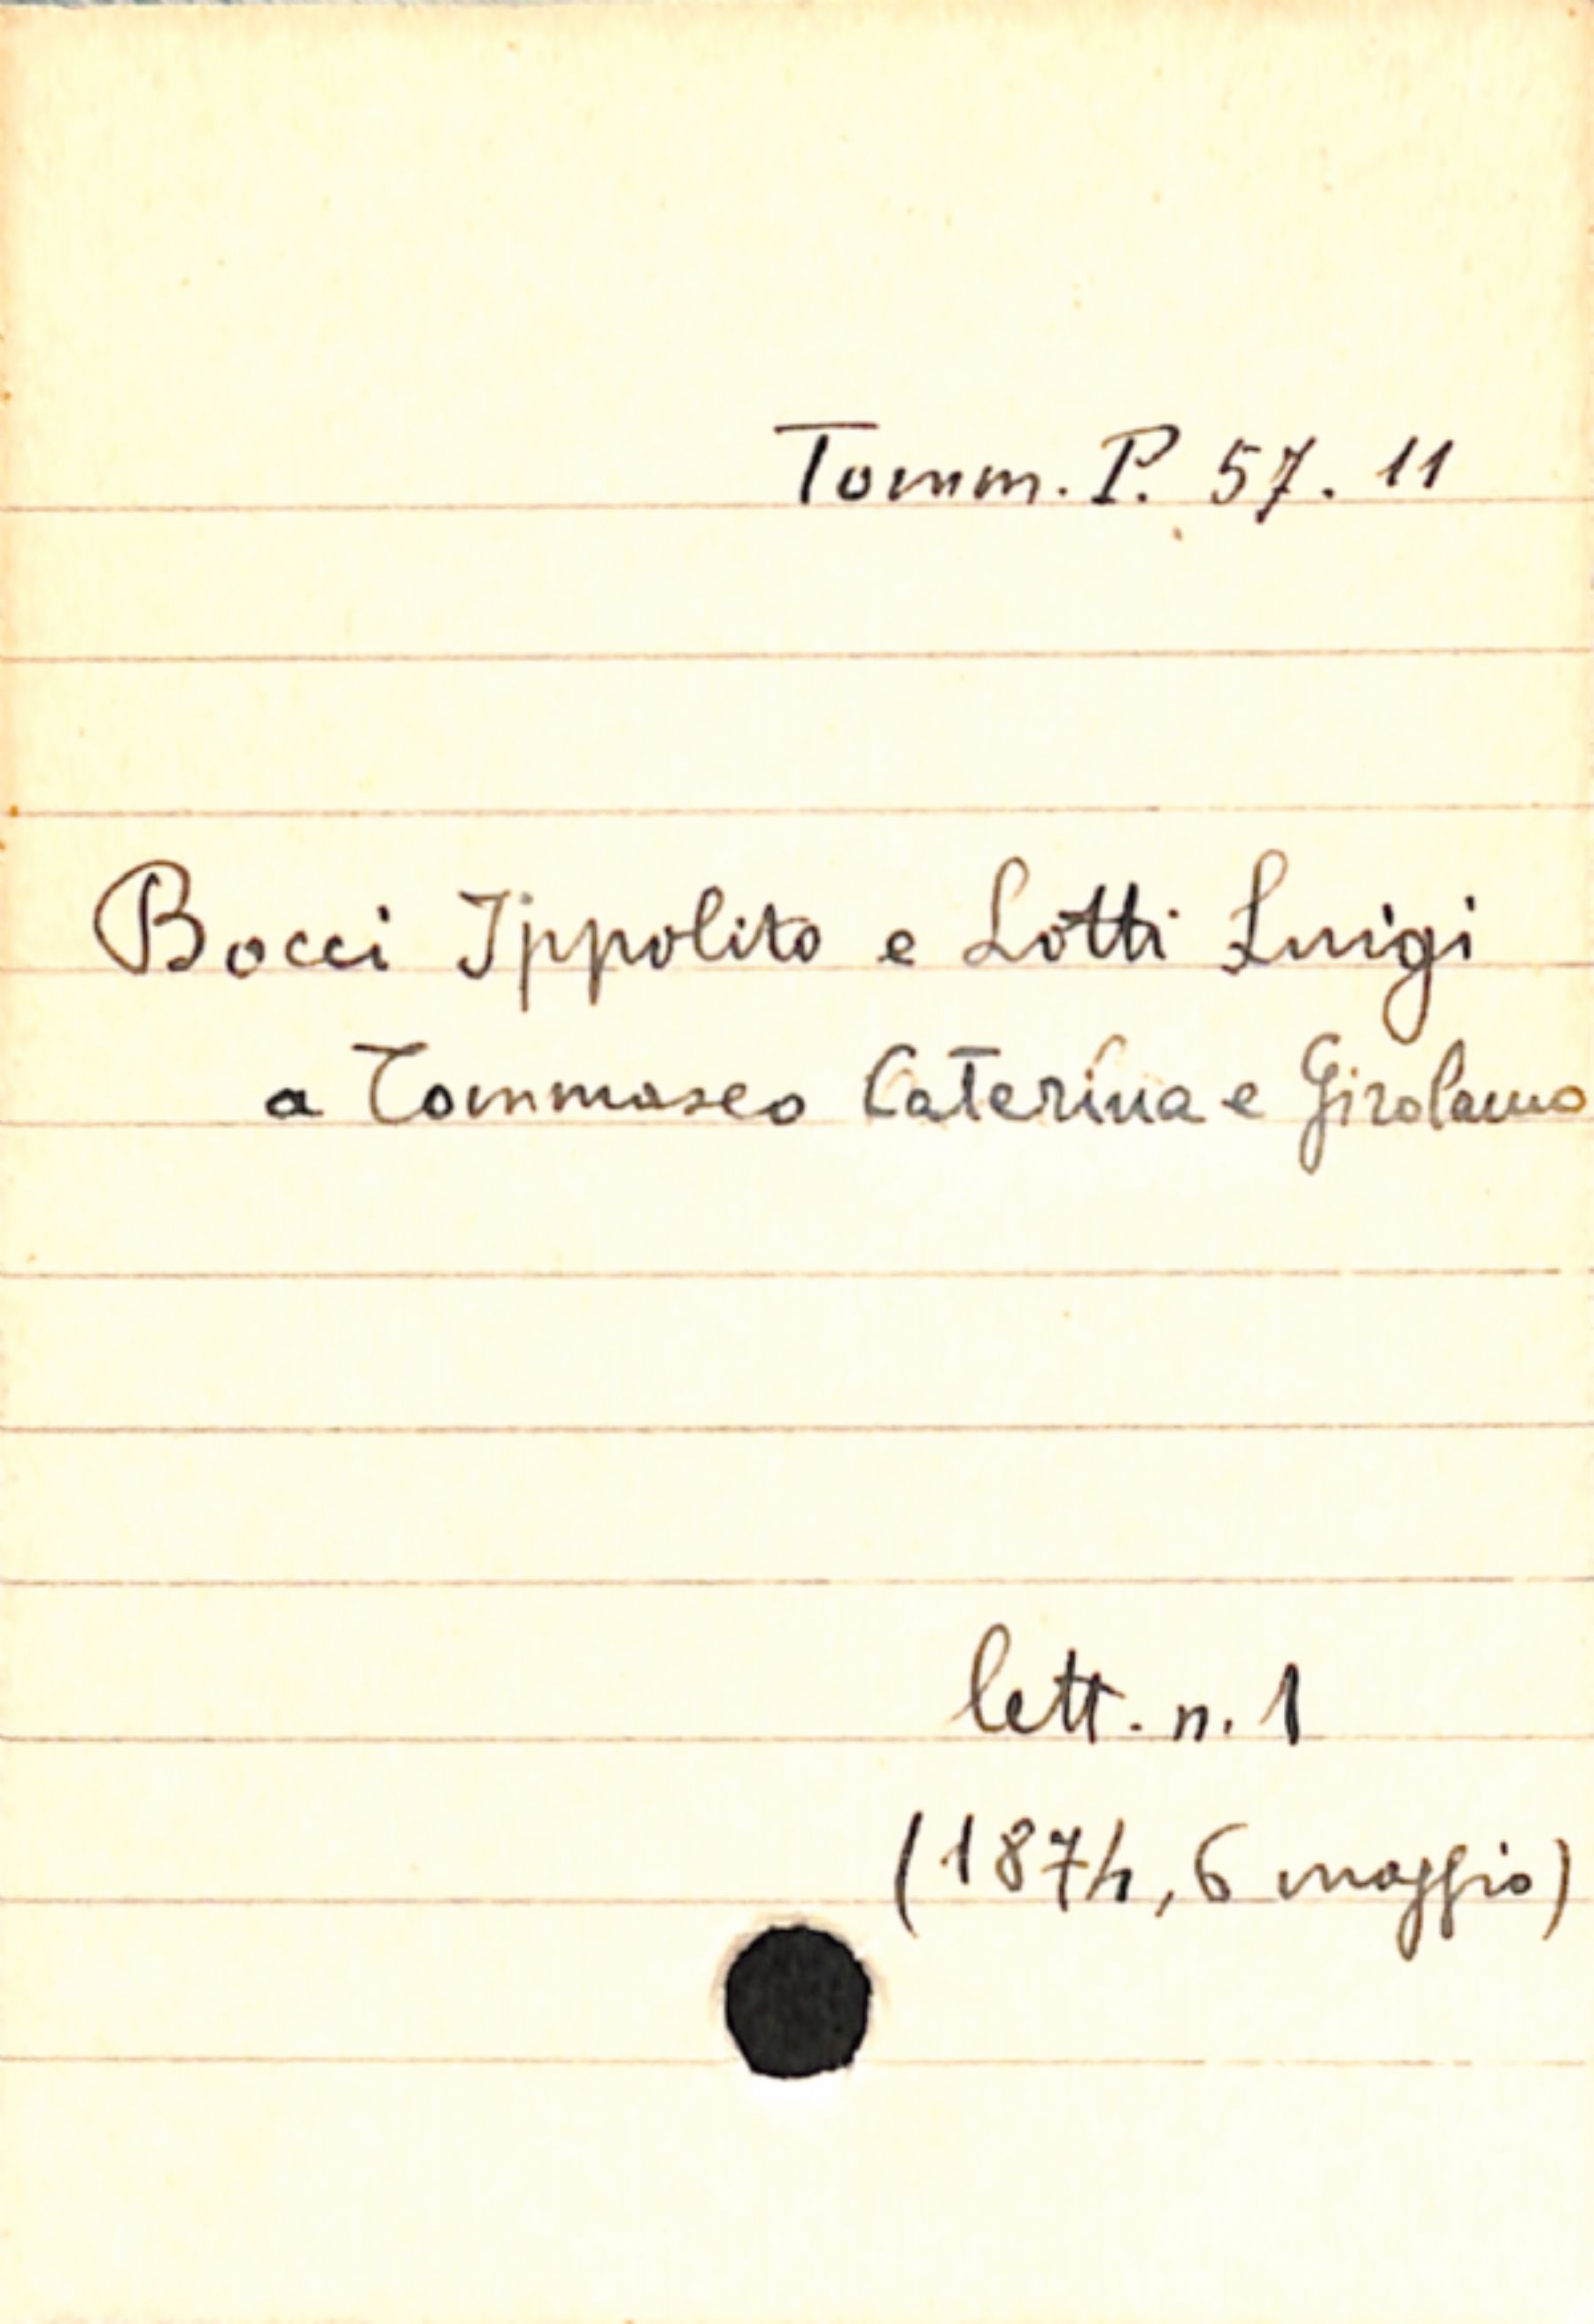 Tomm. P. 57. 11
Bocci Ippolito e Lotti Luigi
a Tommaseo Caterina e Girolamo
lett. n. 1
(1874, 6 maggio)